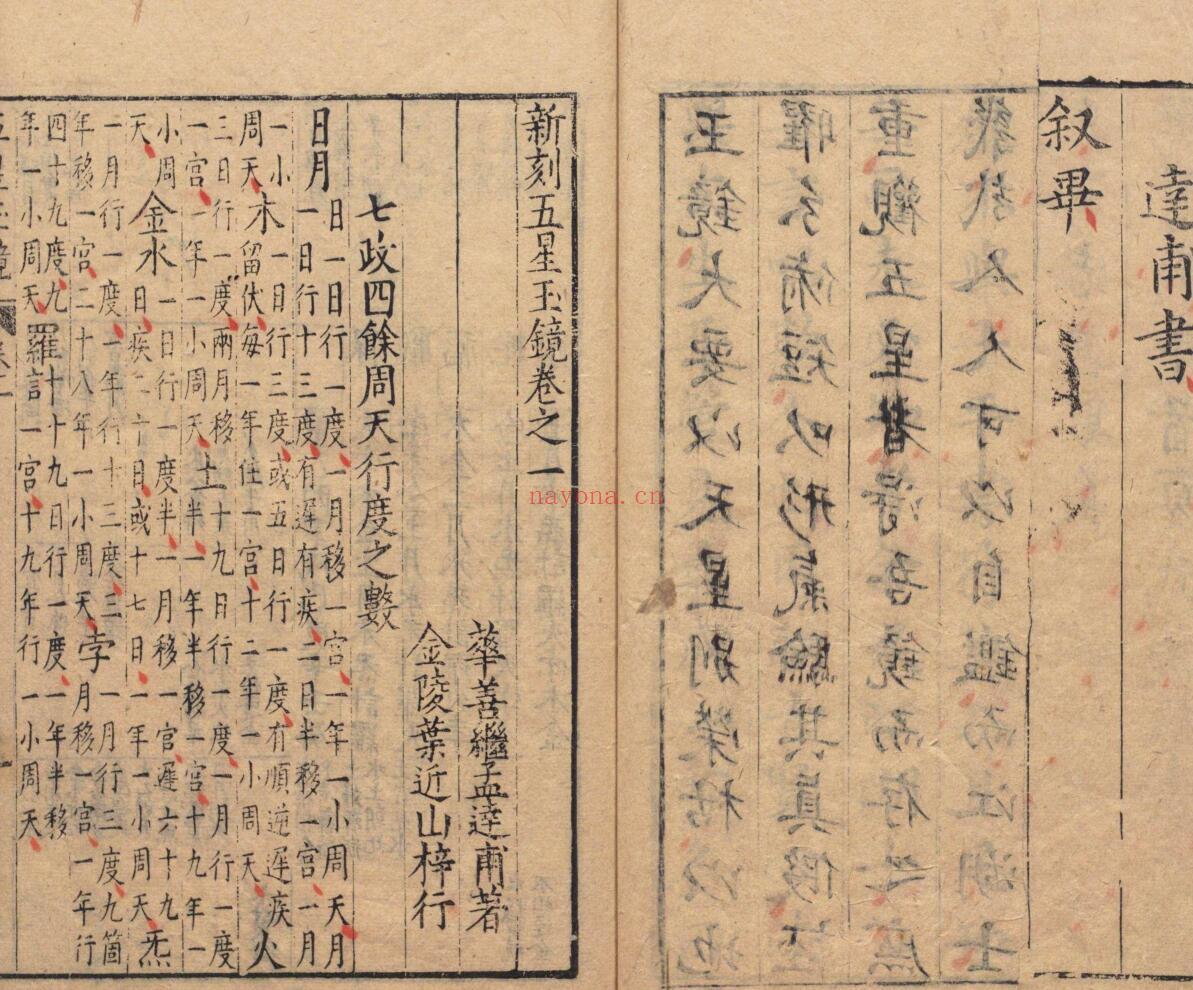 達甫書
叙畢
玉鏡大要以天星別榮枯以地
術短以形氣驗其真假
重觀五星者 吾鏡而存之庶
人可以自鑑而江湖士
新刻五星玉鏡卷之一
華善繼孟達甫著
金陵葉近山梓行
七政四餘周天行度之數
日月
日一日行一度一月移一宮一年一小周天月
一日行十三度有遲有疾二日半移一宮一月
一小
周天
木
一日行三度或五日行一度有順逆遲疾
留伏每一年住一宮十二年一小周天
火
三日行一度兩月移
一宮一年一小周天
土
十九日行一度一月行一度
半一年半移一宮十九年一
小周
天
金水
一日行一度半一月移一宮遲六十九
日疾二十日或十七日一年一小周天
炁
一月行一度一年行十三度三
年移一宮二十八年一小周天
孛
一月行三度九箇
月移一宮一年行
四十九度九
年一小周天
羅計
十十九日行一度一年半移
一宮十九年行一小周天
nayona.cn